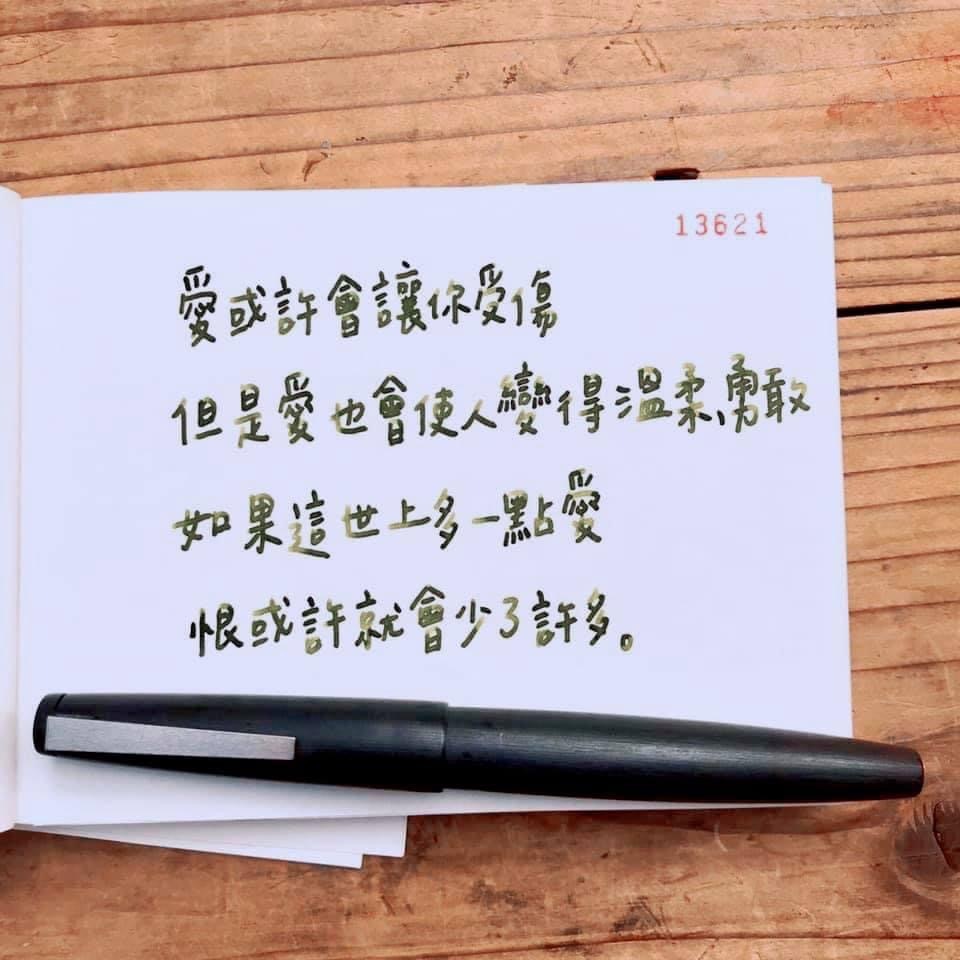 13621
愛或許會讓你受傷
但是愛也會使人變得溫柔、勇敢
如果這世上多一點愛
恨或許就會少了許多。